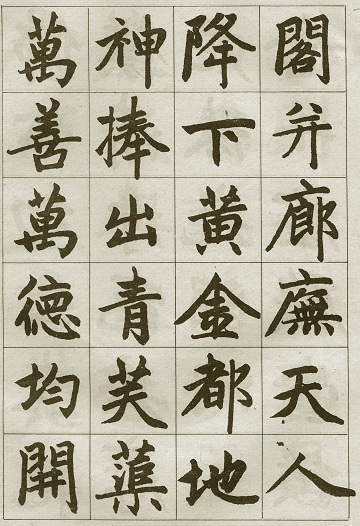 閣并廊廡天人
降下黃金都地
神捧出青芙蕖
萬善萬德均開